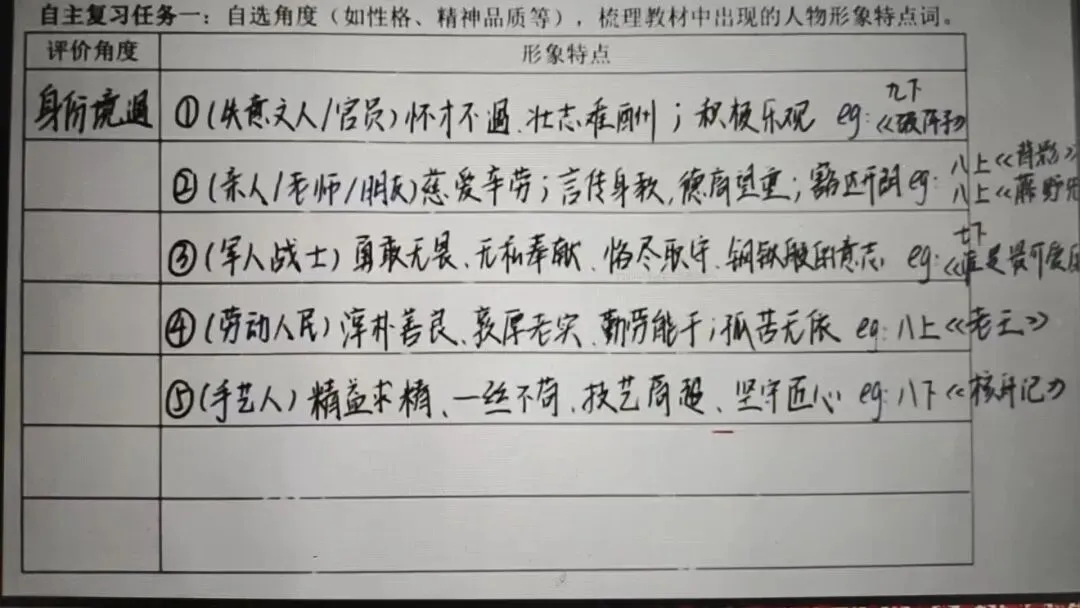 自主复习任务一：自选角度（如性格、精神品质等），梳理教材中出现的人物形象特点词。
评价角度 形象特点
身份境遇 ①(失意文人/官员)怀才不遇、壮志难酬；积极乐观 eg: 九下《破阵子》
②(亲人/老师/朋友)慈爱辛劳；言传身教,德高望重；豁达开朗 eg: 八上《背影》
八上《藤野先
③(军人战士)勇敢无畏、无私奉献、恪尽职守、钢铁般的意志 eg: 七下《谁是最可爱的
④(劳动人民)淳朴善良、敦厚老实、勤劳能干；孤苦无依 eg: 八上《老王》
⑤(手艺人)精益求精、一丝不苟、技艺高超、坚守匠心 eg: 八下《核舟记》